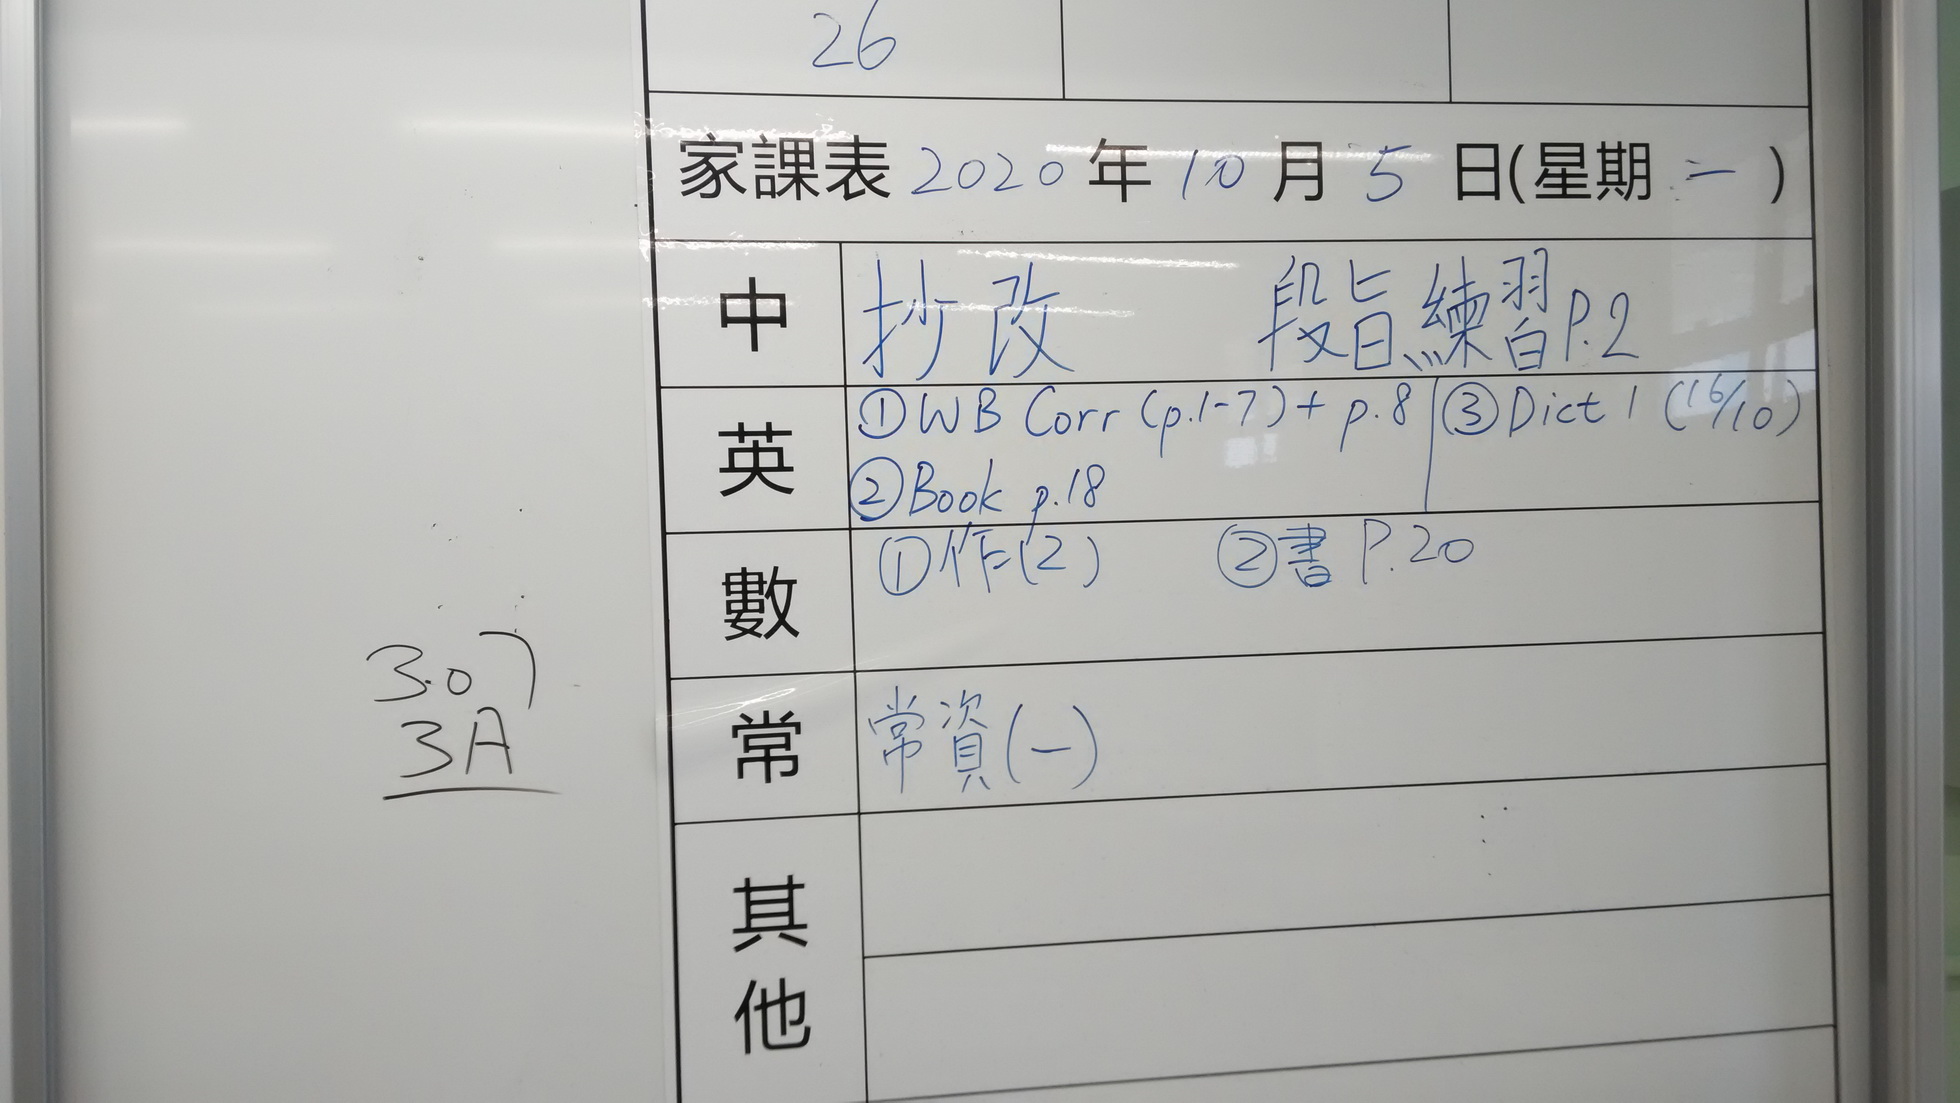 26
家課表 2020 年 10 月 5 日(星期 一 )
中 抄改 段旨練習P.2
英 ①WB Corr (p.1-7) + p.8 ③Dict 1 (16/10)
②Book p.18
數 ①作(2) ②書 P.20
常 常資(一)
其他
3.07
3A